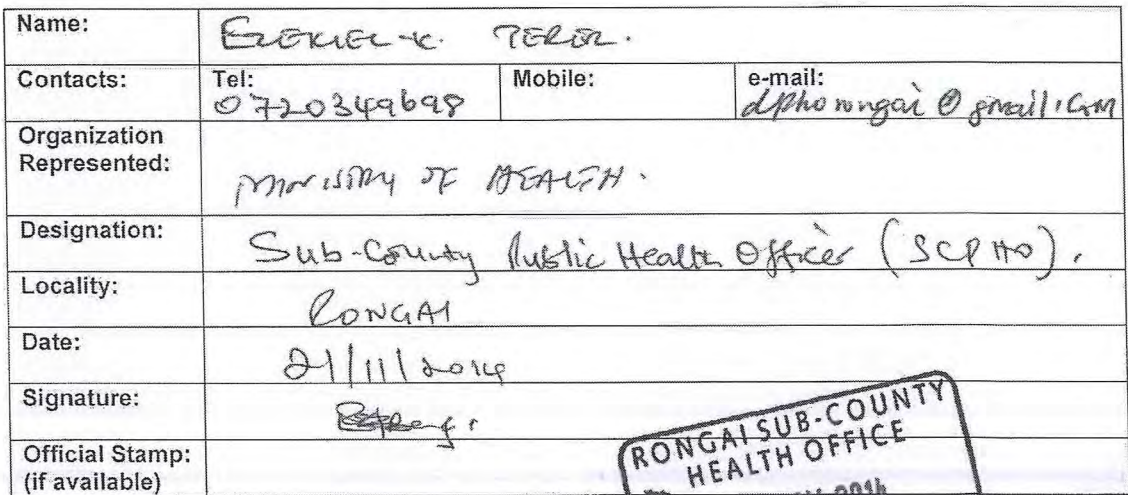 Name: EZEKIEL K. TERER.
Contacts: Tel: 0720349698 Mobile: e-mail: dphorongai@gmail.com
Organization Represented: MINISTRY OF HEALTH.
Designation: Sub-County Public Health Officer (SCPHO).
Locality: RONGAI
Date: 21/11/2014
Signature:
Official Stamp:
(if available)
RONGAI SUB-COUNTY
HEALTH OFFICE
2014